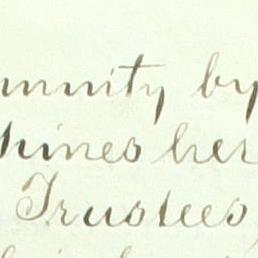 mnity by
hines her
Trustees